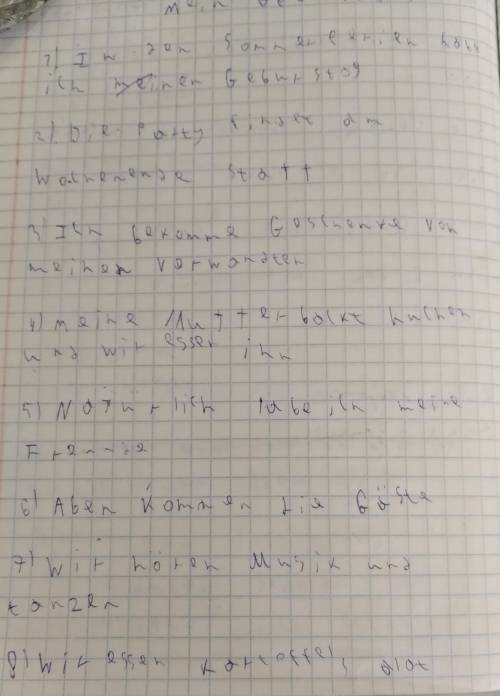 mein
1) In den Sommerferien habe
ich meinen Geburstog
2) Die Party findet am
Wochenende statt
3) Ich bekomme Geschenke von
meinen Verwandten
4) Meine Mutter backt kuchen
und wir essen ihn
5) Natürlich labe ich meine
Freunde
6) Aben kommen die Gäste
7) Wir hören Musik und
tanzen
8) Wir essen Kartoffels alat